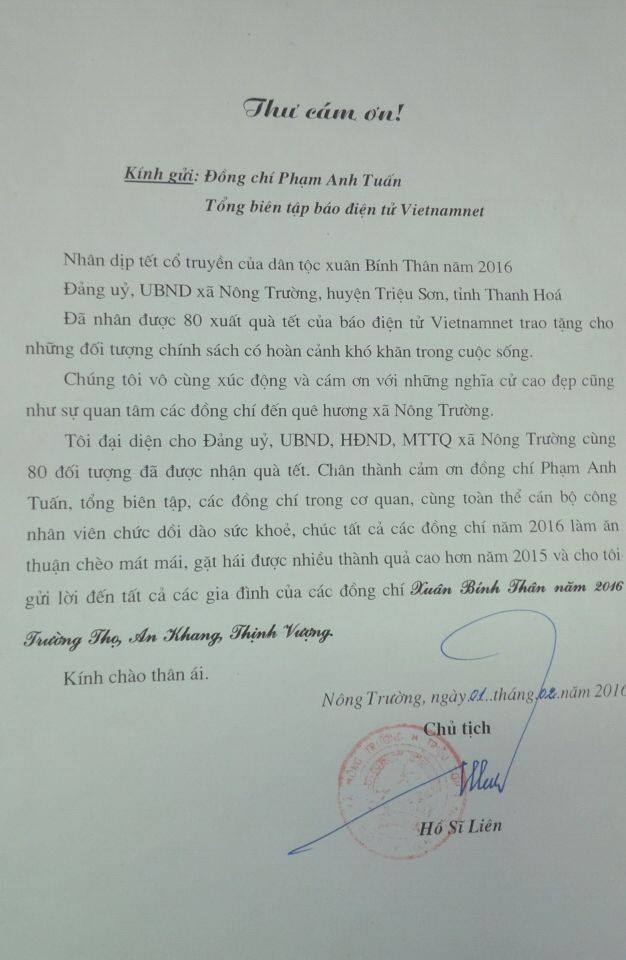 Thư cám ơn!
Kính gửi: Đồng chí Phạm Anh Tuấn
Tổng biên tập báo điện tử Vietnamnet
Nhân dịp tết cổ truyền của dân tộc xuân Bính Thân năm 2016
Đảng uỷ, UBND xã Nông Trường, huyện Triệu Sơn, tỉnh Thanh Hoá
Đã nhân được 80 xuất quà tết của báo điện tử Vietnamnet trao tặng cho
những đối tượng chính sách có hoàn cảnh khó khăn trong cuộc sống.
Chúng tôi vô cùng xúc động và cám ơn với những nghĩa cử cao đẹp cũng
như sự quan tâm các đồng chí đến quê hương xã Nông Trường.
Tôi đại diện cho Đảng uỷ, UBND, HĐND, MTTQ xã Nông Trường cùng
80 đối tượng đã được nhận quà tết. Chân thành cảm ơn đồng chí Phạm Anh
Tuấn, tổng biên tập, các đồng chí trong cơ quan, cùng toàn thể cán bộ công
nhân viên chức dồi dào sức khoẻ, chúc tất cả các đồng chí năm 2016 làm ăn
thuận chèo mát mái, gặt hái được nhiều thành quả cao hơn năm 2015 và cho tôi
gửi lời đến tất cả các gia đình của các đồng chí Xuân Bính Thân năm 2016
Trường Thọ, An Khang, Thịnh Vượng.
Kính chào thân ái.
Nông Trường, ngày 01 tháng 02 năm 2016
Chủ tịch
NÔNG TRƯỜNG H TRIỆU SƠN
Hồ Sĩ Liên